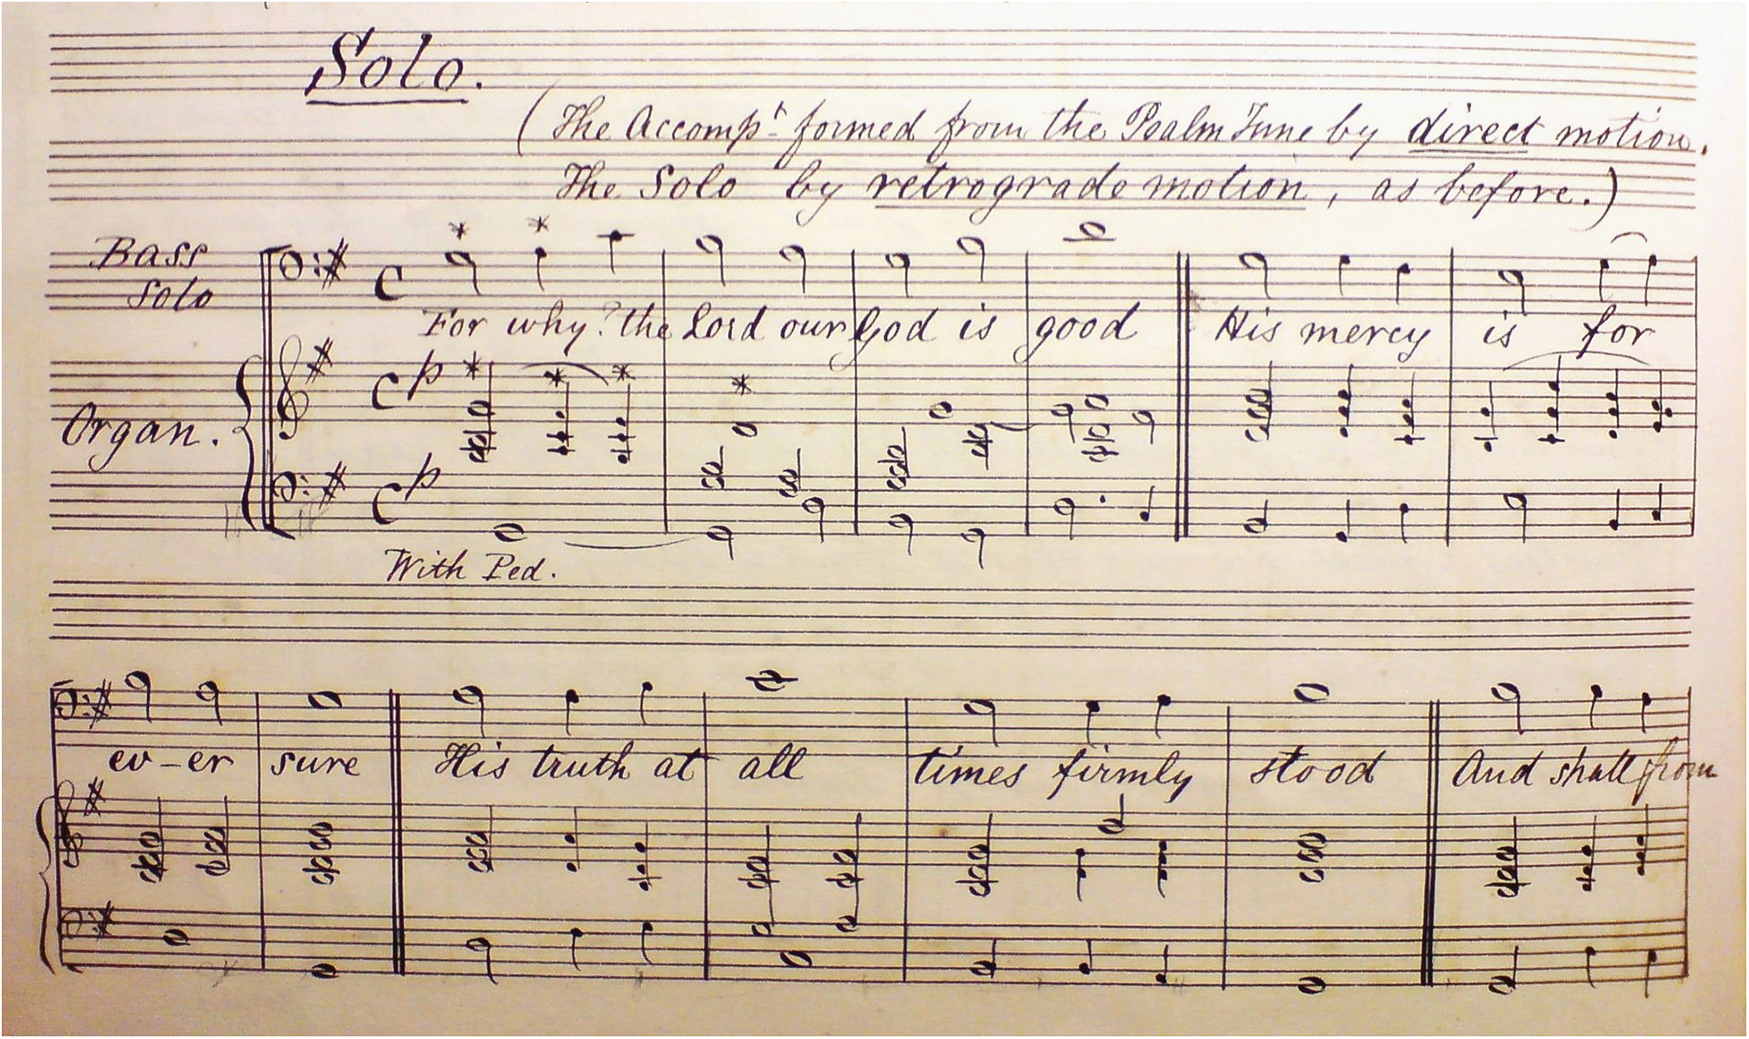 Solo.
(The Accompt. formed from the Psalm Tune by direct motion.
The Solo by retrograde motion, as before.)
Bass
Solo
For why? the Lord our God is good His mercy is for
Organ.
With Ped.
ev-er sure His truth at all times firmly stood And shall from